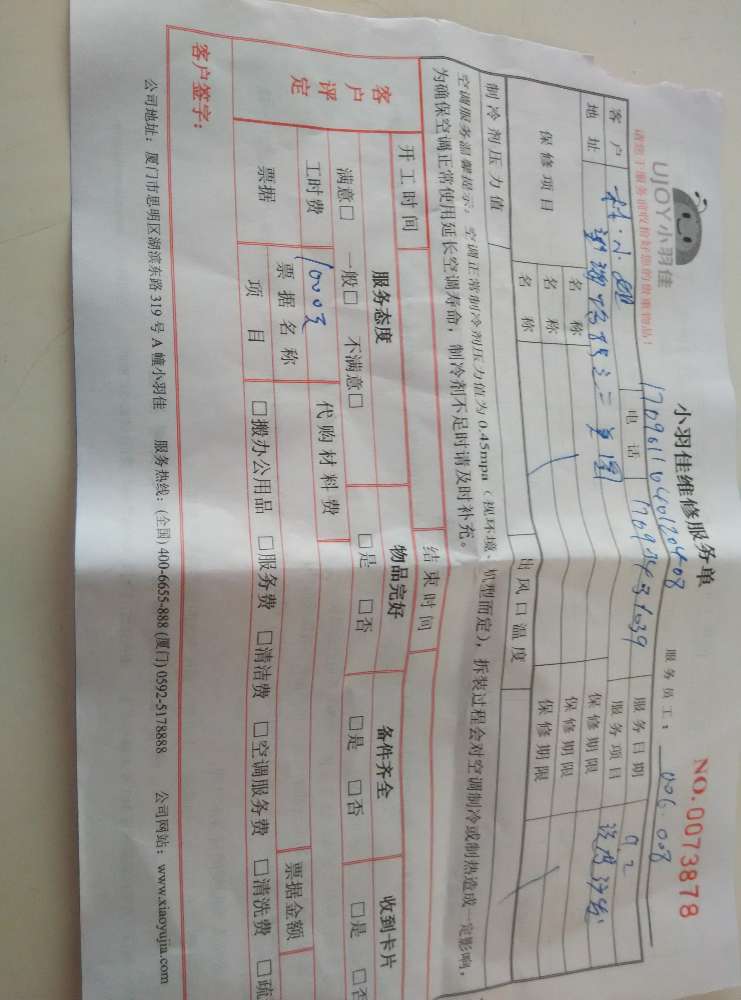 UJOY小羽佳
小羽佳维修服务单
NO.0073878
请您于服务前收拾好您的贵重物品！
服务员工： 006.008
客户
电话
服务日期 9.2
地址
服务项目
保修项目
名称
保修期限
名称
保修期限
名称
保修期限
制冷剂压力值
出风口温度
空调服务温馨提示：空调正常制冷剂压力值为0.45mpa（视环境、机型而定），拆装过程会对空调制冷或制热造成一定影响，
为确保空调正常使用延长空调寿命，制冷剂不足时请及时补充。
开工时间
结束时间
客户评定
服务态度
物品完好
备件齐全
收到卡片
满意□ 一般□ 不满意□
□是 □否
□是 □否
□是 □否
工时费
代购材料费
票据
票据名称
票据金额
项目
□搬办公用品 □服务费 □清洁费 □空调服务费 □清洗费 □疏
客户签字：
公司地址：厦门市思明区湖滨东路319号A幢小羽佳 服务热线：(全国)400-6655-888 (厦门)0592-5178888 公司网站：www.xiaoyujia.com